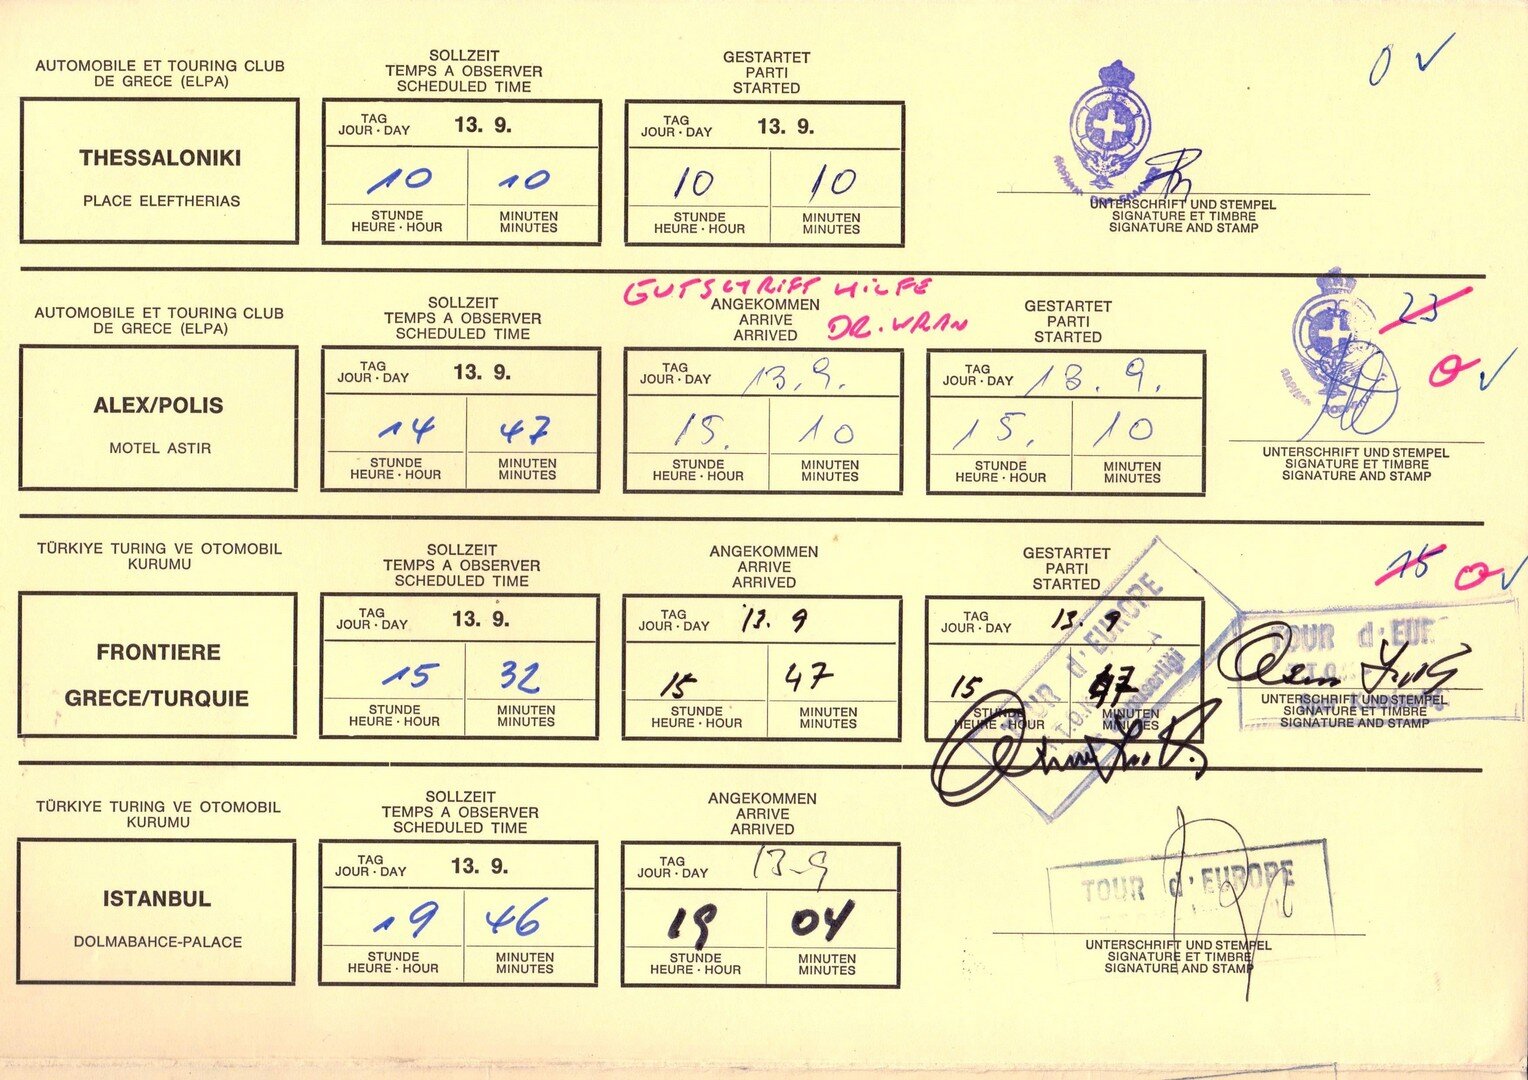 0 ✓
AUTOMOBILE ET TOURING CLUB
DE GRECE (ELPA)
THESSALONIKI
PLACE ELEFTHERIAS
SOLLZEIT
TEMPS A OBSERVER
SCHEDULED TIME
TAG
JOUR · DAY
13. 9.
10 10
STUNDE
HEURE · HOUR
MINUTEN
MINUTES
GESTARTET
PARTI
STARTED
TAG
JOUR · DAY
13. 9.
10 10
STUNDE
HEURE · HOUR
MINUTEN
MINUTES
UNTERSCHRIFT UND STEMPEL
SIGNATURE ET TIMBRE
SIGNATURE AND STAMP
AUTOMOBILE ET TOURING CLUB
DE GRECE (ELPA)
ALEX/POLIS
MOTEL ASTIR
SOLLZEIT
TEMPS A OBSERVER
SCHEDULED TIME
TAG
JOUR · DAY
13. 9.
14 47
STUNDE
HEURE · HOUR
MINUTEN
MINUTES
GUTSCHRIFT HILFE
DR. WRAN
ANGEKOMMEN
ARRIVE
ARRIVED
TAG
JOUR · DAY
13. 9.
15. 10
STUNDE
HEURE · HOUR
MINUTEN
MINUTES
GESTARTET
PARTI
STARTED
TAG
JOUR · DAY
13. 9.
15. 10
STUNDE
HEURE · HOUR
MINUTEN
MINUTES
23
0 ✓
UNTERSCHRIFT UND STEMPEL
SIGNATURE ET TIMBRE
SIGNATURE AND STAMP
TÜRKIYE TURING VE OTOMOBIL
KURUMU
FRONTIERE
GRECE/TURQUIE
SOLLZEIT
TEMPS A OBSERVER
SCHEDULED TIME
TAG
JOUR · DAY
13. 9.
15 32
STUNDE
HEURE · HOUR
MINUTEN
MINUTES
ANGEKOMMEN
ARRIVE
ARRIVED
TAG
JOUR · DAY
13. 9
15 47
STUNDE
HEURE · HOUR
MINUTEN
MINUTES
GESTARTET
PARTI
STARTED
TAG
JOUR · DAY
13. 9
15 47
STUNDE
HEURE · HOUR
MINUTEN
MINUTES
TOUR d'EUROPE
15 0 ✓
TOUR d'EUR
UNTERSCHRIFT UND STEMPEL
SIGNATURE ET TIMBRE
SIGNATURE AND STAMP
TÜRKIYE TURING VE OTOMOBIL
KURUMU
ISTANBUL
DOLMABAHCE-PALACE
SOLLZEIT
TEMPS A OBSERVER
SCHEDULED TIME
TAG
JOUR · DAY
13. 9.
19 46
STUNDE
HEURE · HOUR
MINUTEN
MINUTES
ANGEKOMMEN
ARRIVE
ARRIVED
TAG
JOUR · DAY
13-9
19 04
STUNDE
HEURE · HOUR
MINUTEN
MINUTES
TOUR d'EUROPE
UNTERSCHRIFT UND STEMPEL
SIGNATURE ET TIMBRE
SIGNATURE AND STAMP